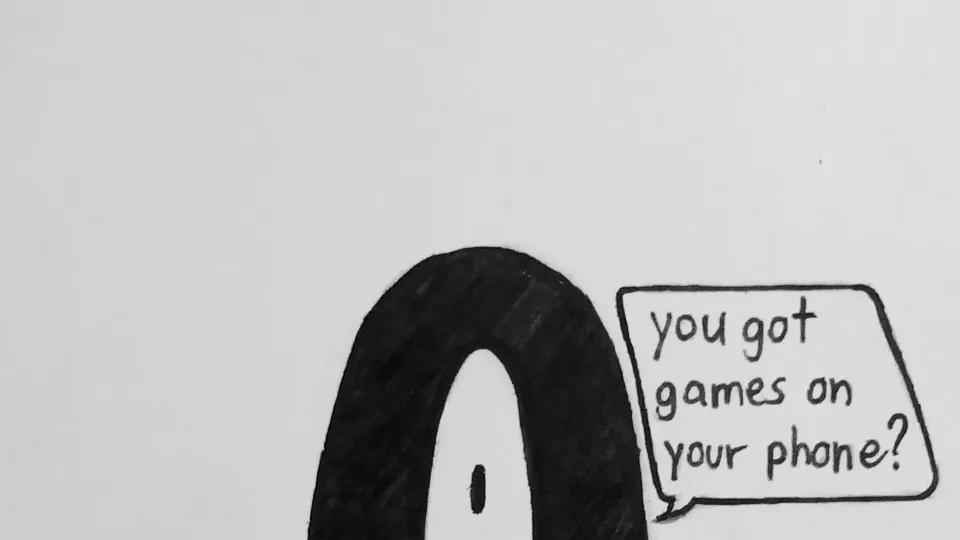 you got
games on
your phone?